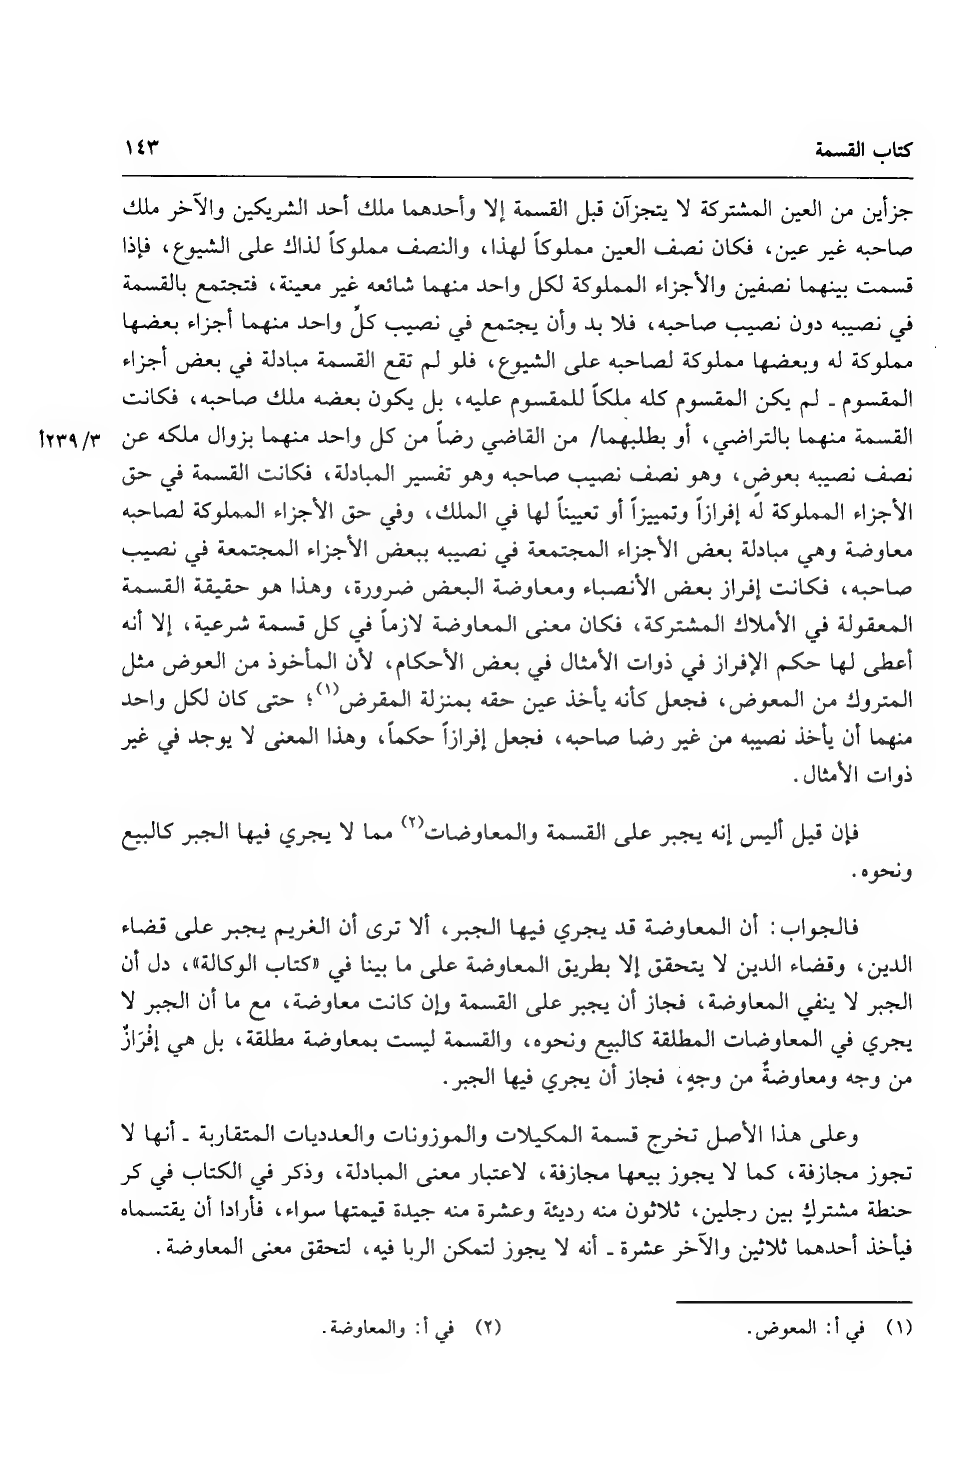 كتاب القسمة ١٤٣
جزأين من العين المشتركة لا يتجزآن قبل القسمة إلا وأحدهما ملك أحد الشريكين والآخر ملك
صاحبه غير عين، فكان نصف العين مملوكاً لهذا، والنصف مملوكاً لذاك على الشيوع، فإذا
قسمت بينهما نصفين والأجزاء المملوكة لكل واحد منهما شائعه غير معينة، فتجتمع بالقسمة
في نصيبه دون نصيب صاحبه، فلا بد وأن يجتمع في نصيب كلِّ واحد منهما أجزاء بعضها
مملوكة له وبعضها مملوكة لصاحبه على الشيوع، فلو لم تقع القسمة مبادلة في بعض أجزاء
المقسوم ـ لم يكن المقسوم كله ملكاً للمقسوم عليه، بل يكون بعضه ملك صاحبه، فكانت
القسمة منهما بالتراضي، أو بطلبهما/ من القاضي رضاً من كل واحد منهما بزوال ملكه عن ٢٣٩/٣أ
نصف نصيبه بعوضٍ، وهو نصف نصيب صاحبه وهو تفسير المبادلة، فكانت القسمة في حق
الأجزاء المملوكة له إفرازاً وتمييزاً أو تعييناً لها في الملك، وفي حق الأجزاء المملوكة لصاحبه
معاوضة وهي مبادلة بعض الأجزاء المجتمعة في نصيبه ببعض الأجزاء المجتمعة في نصيب
صاحبه، فكانت إفراز بعض الأنصباء ومعاوضة البعض ضرورة، وهذا هو حقيقة القسمة
المعقولة في الأملاك المشتركة، فكان معنى المعاوضة لازماً في كل قسمة شرعية، إلا أنه
أعطى لها حكم الإفراز في ذوات الأمثال في بعض الأحكام، لأن المأخوذ من العوض مثل
المتروك من المعوض، فجعل كأنه يأخذ عين حقه بمنزلة المقرض(١)؛ حتى كان لكل واحد
منهما أن يأخذ نصيبه من غير رضا صاحبه، فجعل إفرازاً حكماً، وهذا المعنى لا يوجد في غير
ذوات الأمثال.
فإن قيل أليس إنه يجبر على القسمة والمعاوضات(٢) مما لا يجري فيها الجبر كالبيع
ونحوه.
فالجواب: أن المعاوضة قد يجري فيها الجبر، ألا ترى أن الغريم يجبر على قضاء
الدين، وقضاء الدين لا يتحقق إلا بطريق المعاوضة على ما بينا في «كتاب الوكالة»، دل أن
الجبر لا ينفي المعاوضة، فجاز أن يجبر على القسمة وإن كانت معاوضة، مع ما أن الجبر لا
يجري في المعاوضات المطلقة كالبيع ونحوه، والقسمة ليست بمعاوضة مطلقة، بل هي إفْرَازٌ
من وجه ومعاوضةٌ من وجهٍ، فجاز أن يجري فيها الجبر.
وعلى هذا الأصل تخرج قسمة المكيلات والموزونات والعدديات المتقاربة ـ أنها لا
تجوز مجازفة، كما لا يجوز بيعها مجازفة، لاعتبار معنى المبادلة، وذكر في الكتاب في كر
حنطة مشتركٍ بين رجلين، ثلاثون منه رديئة وعشرة منه جيدة قيمتها سواء، فأرادا أن يقتسماه
فيأخذ أحدهما ثلاثين والآخر عشرة ـ أنه لا يجوز لتمكن الربا فيه، لتحقق معنى المعاوضة.
(١) في أ: المعوض. (٢) في أ: والمعاوضة.